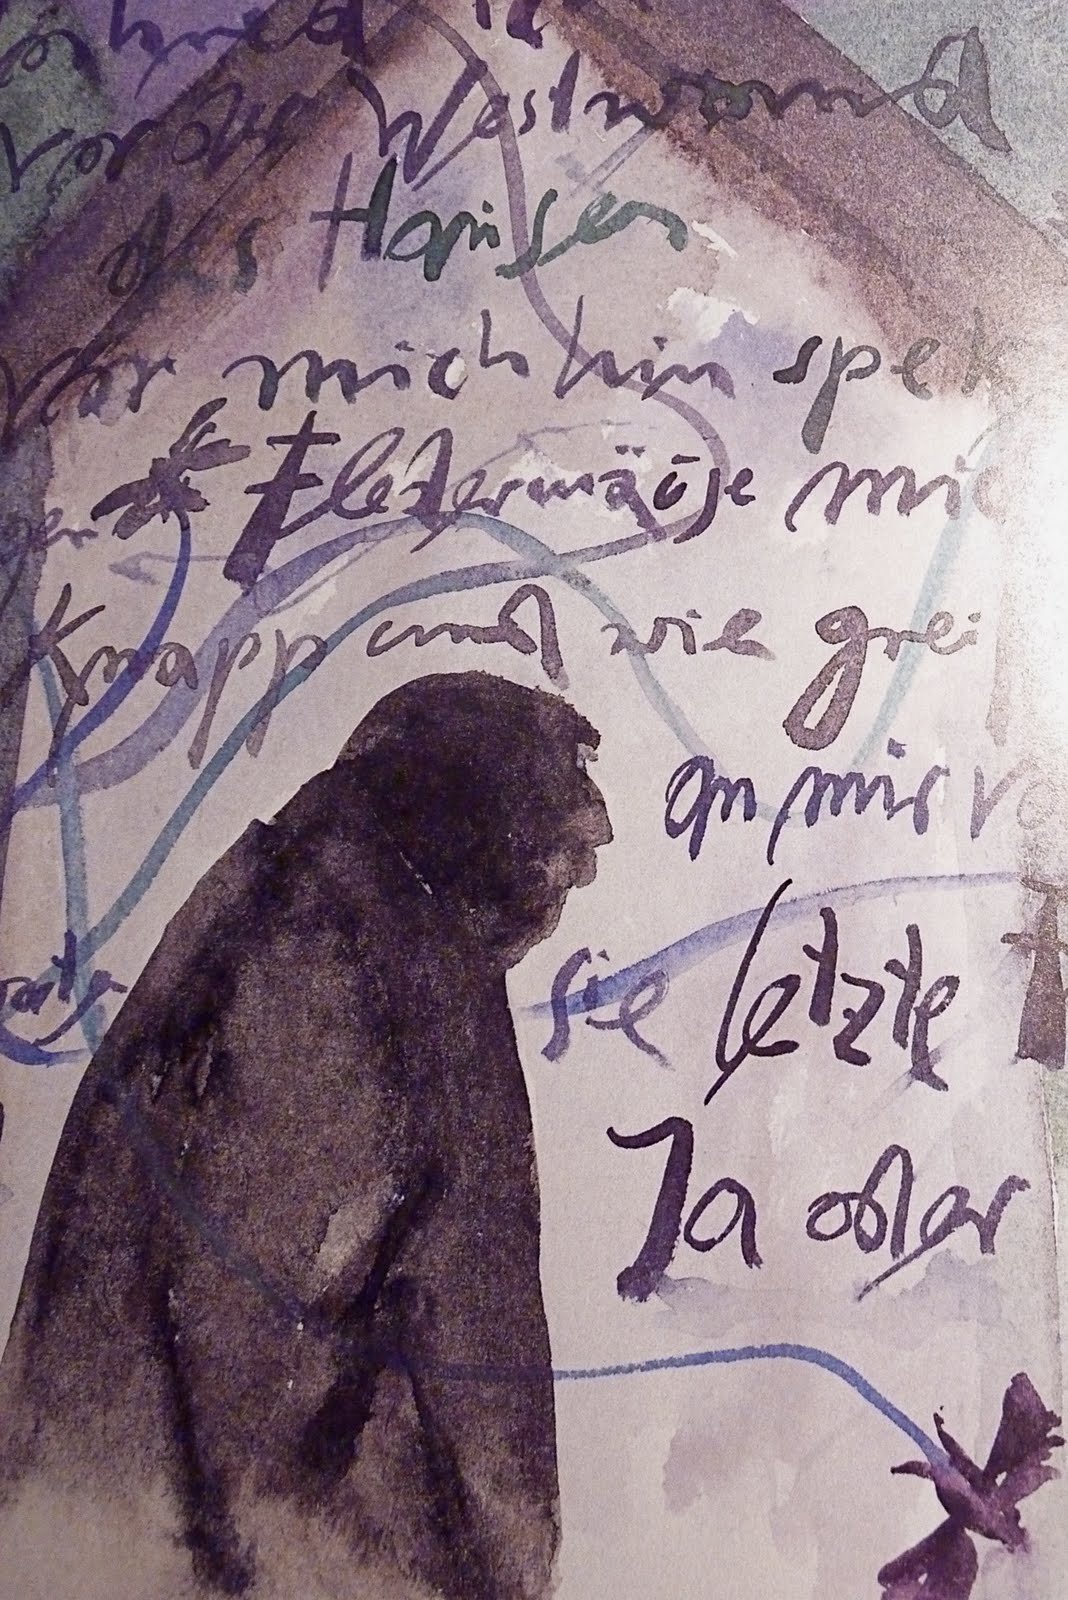 vor der Westwand
des Hauses
vor mich hin spek
Fledermäuse mi
Knapp und wie grei
an mir v
sie letzte
Ja oder